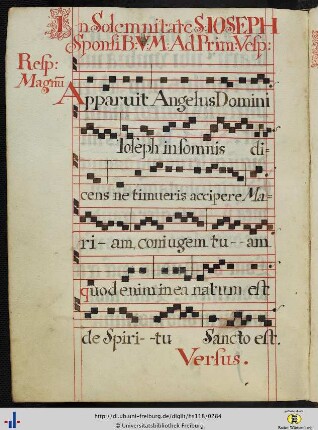 In Solemnitate S. IOSEPH
Sponsi B.V.M. Ad Prim: Vesp:
Resp:
Magnũ
Apparuit Angelus Domini
Ioseph in somnis di-
cens ne timueris accipere Ma-
ri- am, coniugem tu-- am
quod enim in ea natum est
de Spiri--tu Sancto est.
Versus.
http://dl.ub.uni-freiburg.de/diglit/hs118/0284
© Universitätsbibliothek Freiburg